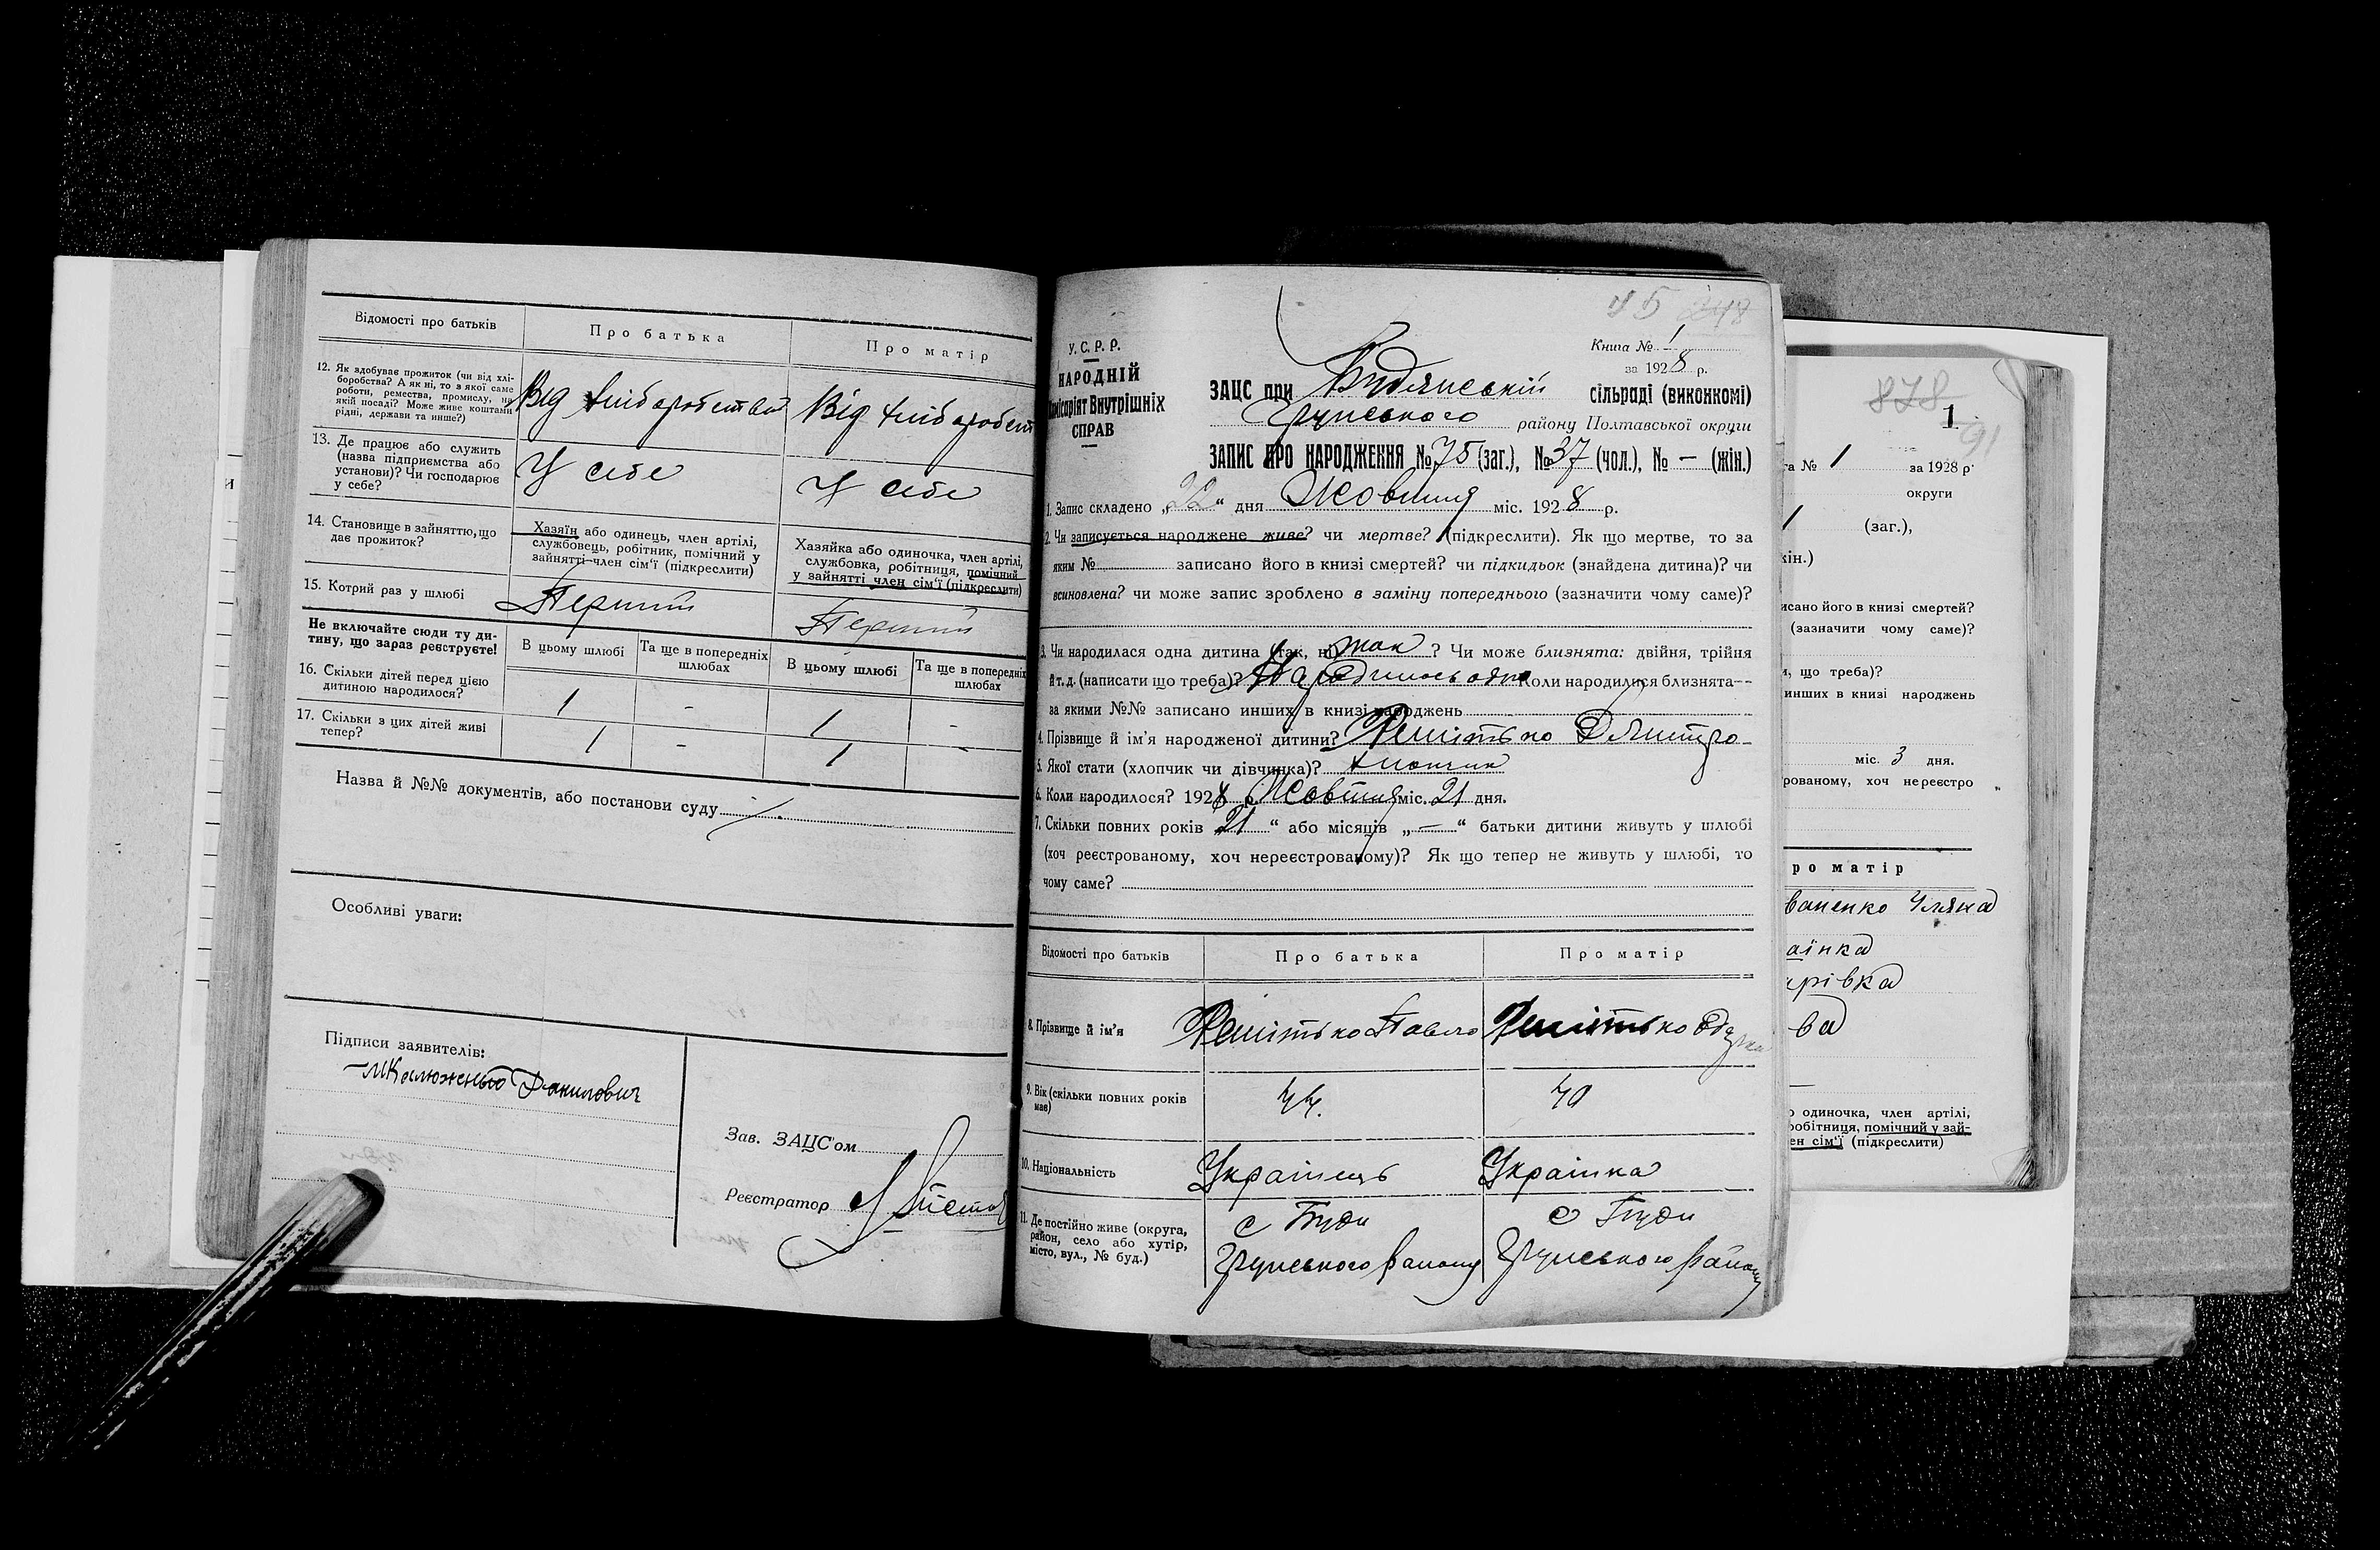 Відомості про батьків
Про батька
Про матір
12. Як здобуває прожиток (чи від хлі-
боробства? А як ні, то з якої саме
роботи, ремества, промислу, на
якій посаді? Може живе коштами
рідні, держави та инше?)
Від хліборобства
Від хлібороб
13. Де працює або служить
(назва підприємства або
установи)? Чи господарює
у себе?
У себе
У себе
14. Становище в зайняттю, що
дає прожиток?
Хазяїн або одинець, член артілі,
службовець, робітник, помічний у
зайнятті член сім'ї (підкреслити)
Хазяйка або одиночка, член артілі,
службовка, робітниця, помічний
у зайнятті член сім'ї (підкреслити)
15. Котрий раз у шлюбі
Перший
Перший
Не включайте сюди ту ди-
тину, що зараз реєструєте!
В цьому шлюбі
Та ще в попередніх
шлюбах
В цьому шлюбі
Та ще в попередніх
шлюбах
16. Скільки дітей перед цією
дитиною народилося?
1 - 1 -
17. Скільки з цих дітей живі
тепер?
1 - 1 -
Назва й №№ документів, або постанови суду
Особливі уваги:
Підписи заявителів:
Данилович
Зав. ЗАЦС'ом
Реєстратор
45 248
У.С.Р.Р.
НАРОДНІЙ
Комісаріят Внутрішніх
СПРАВ
Книга № 1
за 1928 р.
ЗАЦС при Будянській сільраді (виконкомі)
Грунського району Полтавської округи
ЗАПИС ПРО НАРОДЖЕННЯ № 75 (заг.), № 37 (чол.), № — (жін.)
1. Запис складено „22" дня Жовтня міс. 1928 р.
2. Чи записується народжене живе? чи мертве? (підкреслити). Як що мертве, то за
яким № записано його в книзі смертей? чи підкидьок (знайдена дитина)? чи
всиновлена? чи може запис зроблено в заміну попереднього (зазначити чому саме)?
3. Чи народилася одна дитина (так, ні) так? Чи може близнята: двійня, трійня
й т. д. (написати що треба)? Народилось одно Коли народилися близнята—
за якими №№ записано инших в книзі народжень
4. Прізвище й ім'я народженої дитини? Решітько Дмитро
5. Якої стати (хлопчик чи дівчинка)? хлопчик
6. Коли народилося? 1928 р. Жовтня міс. 21 дня.
7. Скільки повних років „21" або місяців „—" батьки дитини живуть у шлюбі
(хоч реєстрованому, хоч нереєстрованому)? Як що тепер не живуть у шлюбі, то
чому саме?
Відомості про батьків
Про батька
Про матір
8. Прізвище й ім'я
Решітько Павло
Решітько
9. Вік (скільки повних років
має)
44.
40
10. Національність
Українець
Українка
11. Де постійно живе (округа,
район, село або хутір,
місто, вул., № буд.)
с Буди
Грунського району
с Буди
Грунського району
878
1
91
га № 1 за 1928 р.
округи
1 (заг.),
кін.)
исано його в книзі смертей?
(зазначити чому саме)?
и, що треба)?
инших в книзі народжень
міс. 3 дня.
рованому, хоч нереєстро
ро матір
ваненко Уляна
аїнка
арівка
ва
о одиночка, член артілі,
робітниця, помічний у зай-
ен сім'ї (підкреслити)